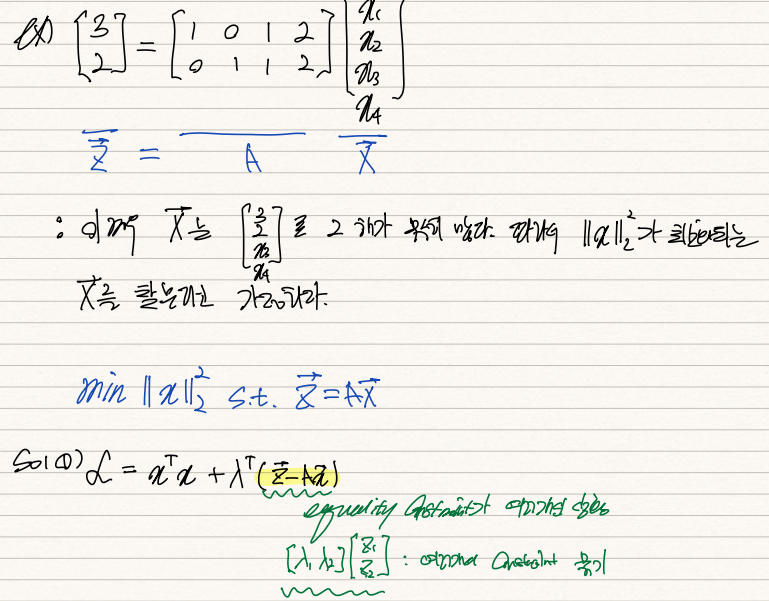 ex) [3 2] = [1 0 1 2 0 1 1 2] [x₁ x₂ x₃ x₄]
z⃗ = A x⃗
: 이때 x⃗는 [3 2 x₃ x₄]로 그 해가 무수히 많다. 따라서 ||x||₂²가 최소화되는
x⃗를 찾는다면 가능하다.
min ||x||₂² s.t. z⃗ = Ax⃗
Sol ①) ℒ = xᵀx + λᵀ(z⃗-Ax⃗)
equality constraint가 여러개인
[λ₁ λ₂] [z₁ z₂] : 여러개 constraint 묶기